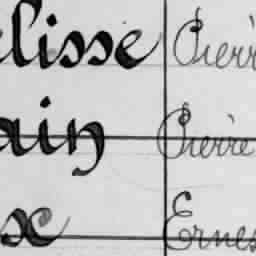 elisse Pierr
ain Pierre
x Ernes